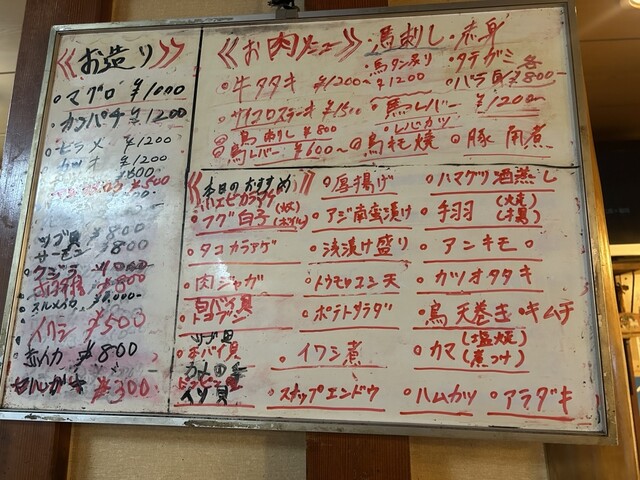 ≪お造り≫
・マグロ ¥1000
・カンパチ ¥1200
・ヒラメ ¥1200
・カツオ ¥1200
¥500
ツブ貝 ¥800
サーモン ¥800
・クジラ
・スルメイカ
イワシ ¥500
赤イカ ¥800
¥300
≪お肉メニュー
・馬刺し・赤身
・馬タン炙り ¥1200
・タテガミ
・バラ身 ¥800-
・牛タタキ ¥1200~
・サイコロステーキ ¥1500
・馬レバー ¥1200~
・鳥刺し ¥800
・レバカツ
・鳥レバー ¥600~
・鳥モモ焼
・豚角煮
≪本日のおすすめ≫
・フグ白子
・タコカラアゲ
・肉ジャガ
白バイ貝
・赤バイ貝
・厚揚げ
・アジ南蛮漬け
・浅漬け盛り
・トウモロコシ天
・ポテトサラダ
・イワシ煮
・スナップエンドウ
・ハマグリ酒蒸し
・手羽 (焼) (揚)
・アンキモ
・カツオタタキ
・鳥天巻玉・キムチ
・カマ (塩焼) (煮つけ)
・ハムカツ ・アラダキ